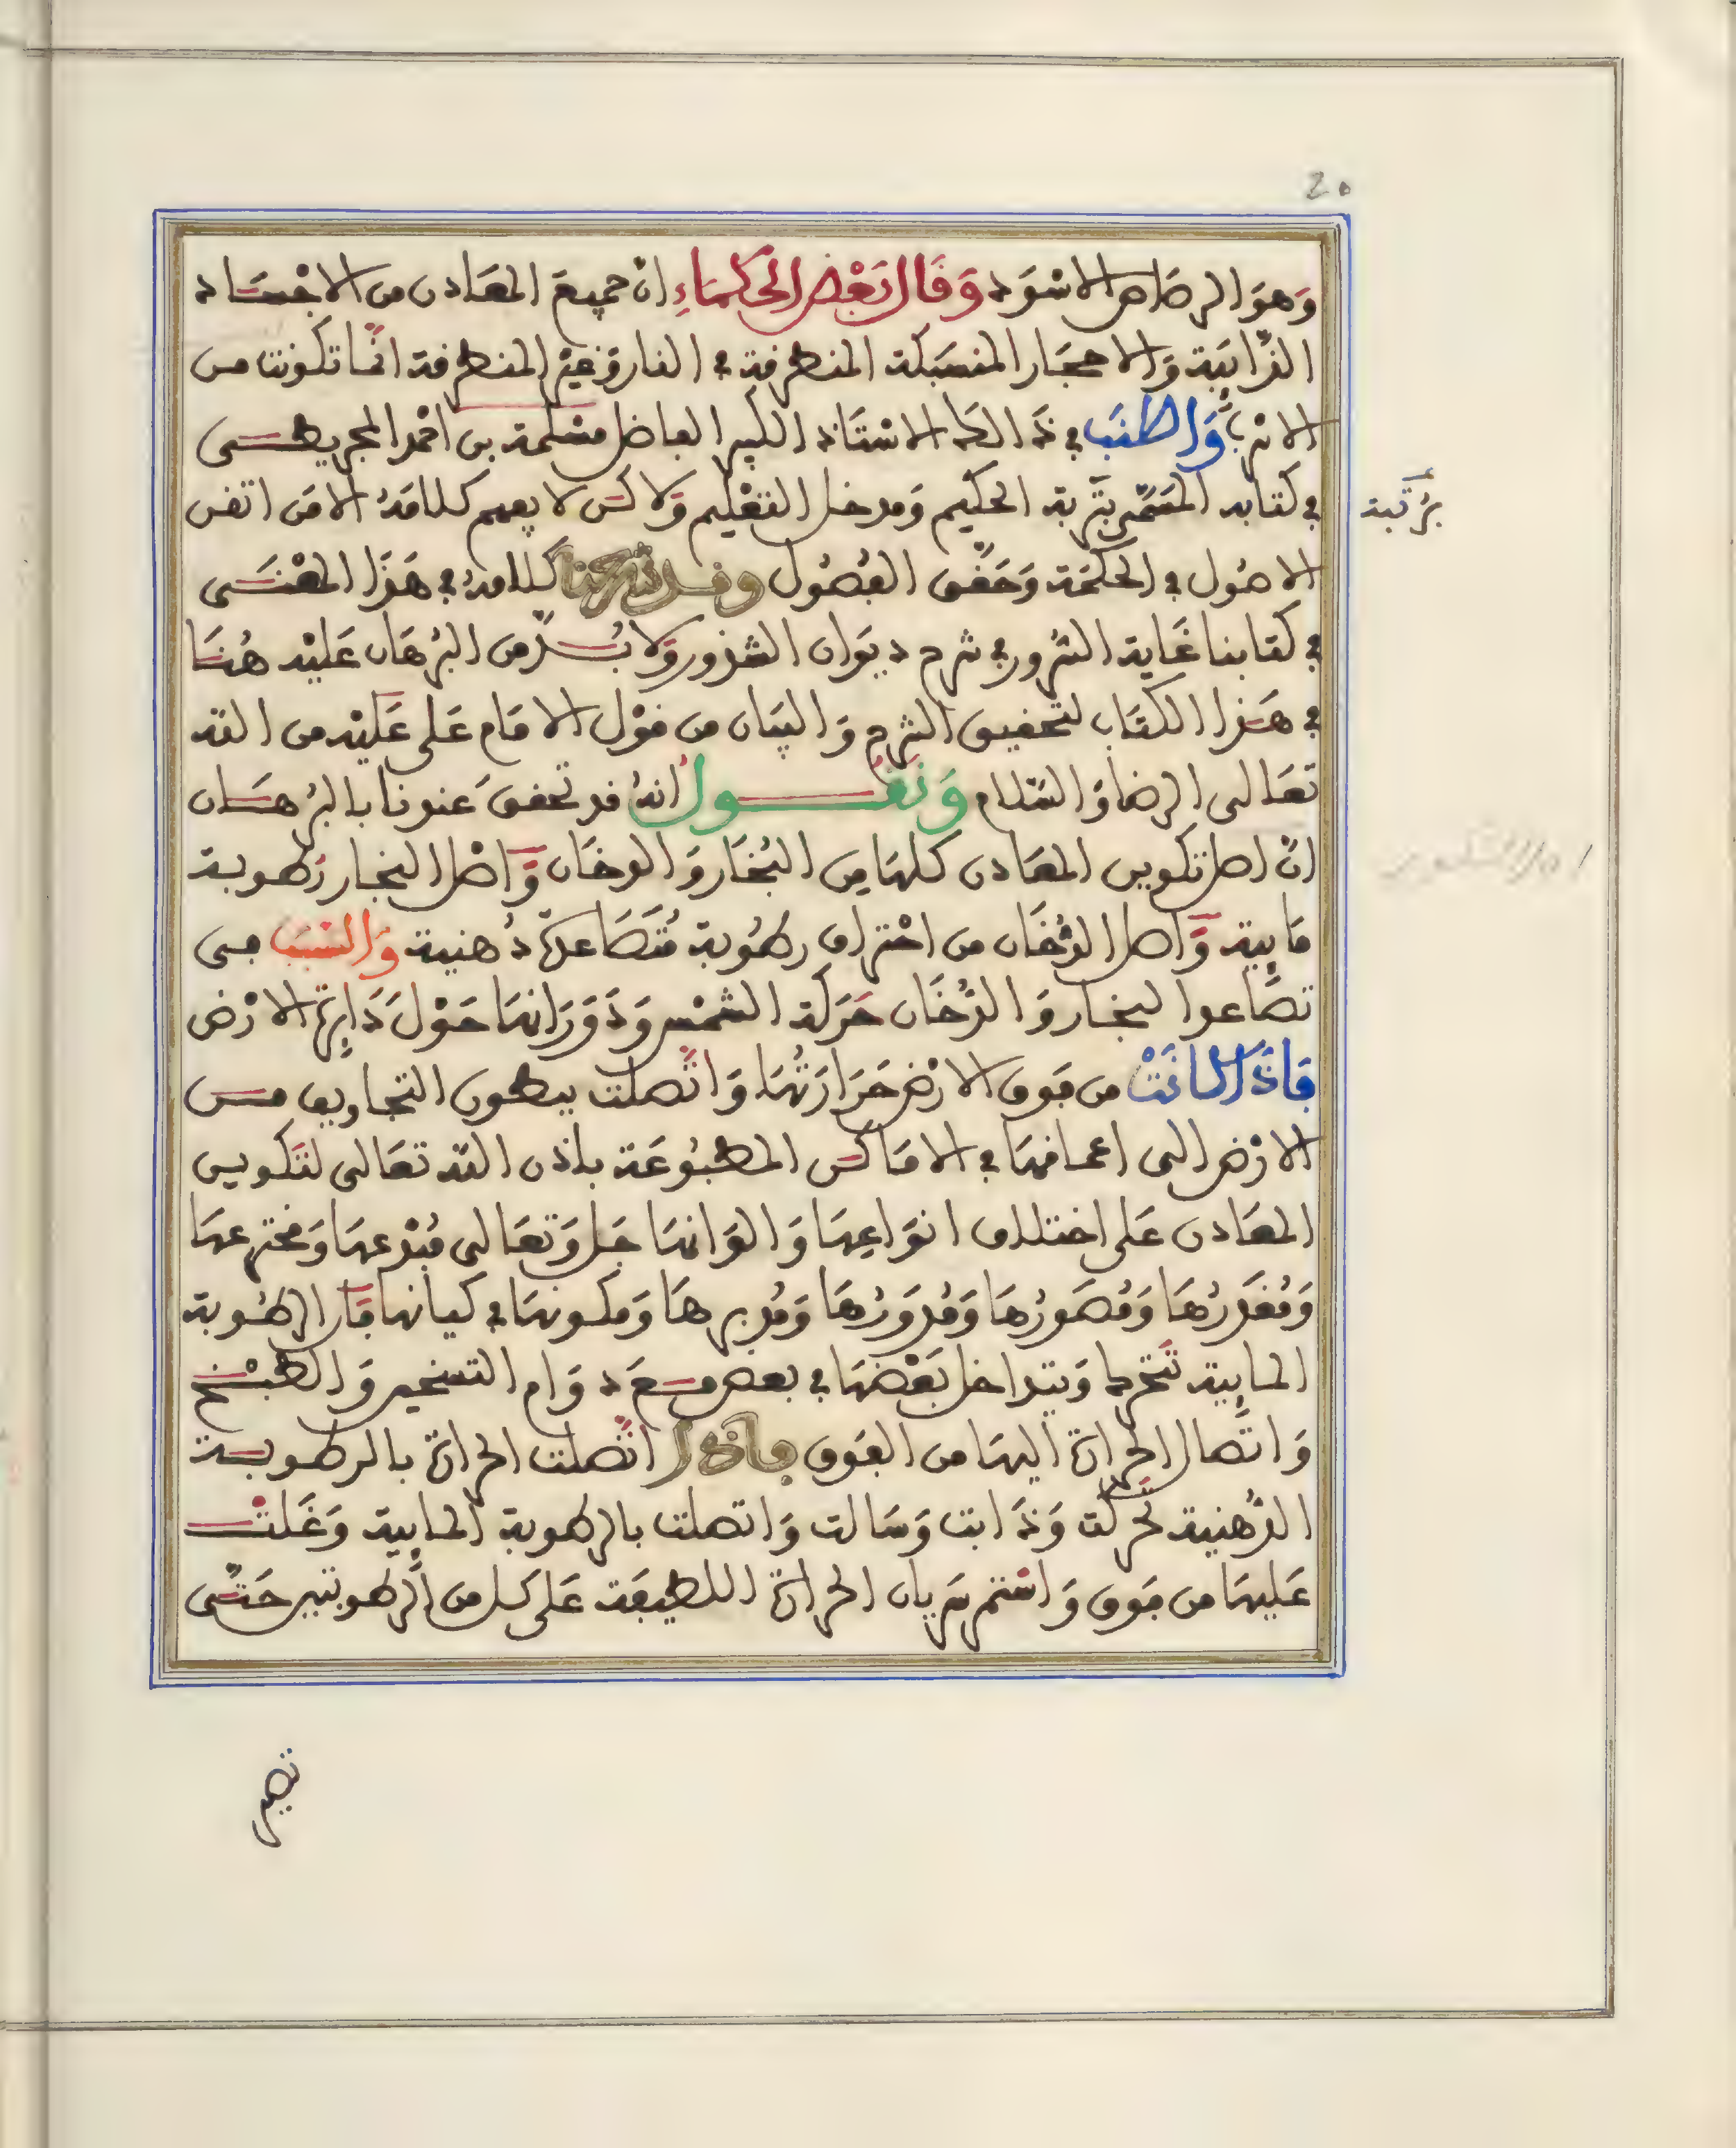 20
وَهوَ الرصَاص الاسْوَد وَقَال بَعْض الحكمَاءِ ان جميعَ المعَادن من الاجْسَاد
الذَّايبَة وَالاحجَار المنسَبكة المنطرقة في النار وَغيْر المنطرقة انّما تكونت من
الانرب وَاطنَب في ذَالك الاسْتَاذ الكبير الفاضل مسْلمة بن احْمد المجريطى
في كتابه المسَمّى بتربة الحكيم وَمدخل التعْليم وَلاكن لا يفهم كلامهُ الا مَن اتقن
برُتبة
الاصُول في الحكمَة وَحَقّق الفُصُول وقد شرحنا كلامهُ في هَذَا المعْنَى
في كتابنا غَاية السُّرور في شرح ديوَان الشذور وَلا بُدّ من البُرهَان عَليْه هُنَا
في هَذا الكتَاب لتحقيق الشرح وَالبيَان من قوْل الامَام عَلى عَليْه من الله
تعَالى الرضا وَالسَّلام وَنَقُول انهُ قد تحققَ عندنا بالبُرهَان
انّ اصل تكوين المعَادن كلهَا مِن البُخَار وَالدخَان وَاصْل البخار رُطوبة
مَايِية وَاصل الدُّخَان من احْترَاق رطُوبة مُتَصَاعدة دُهنية وَالسبَب في
تصَاعد البخار وَالدُّخَان حَرَكة الشمْس وَدَوَرَانهَا حَوْلَ دَايرة الارْض
فَاذَا كانَتْ من فَوق الارْض حَرَارَتُهَا وَاتّصلت ببطون التجاويف من
الارْض الى اعماقهَا في الامَاكن المطبُوعَة باذن الله تعَالى لتكوين
المعَادن عَلى اختلاف انوَاعِهَا وَالوَانهَا جَل وَتعَالى مُبْدعهَا وَمخترعهَا
وَمُقَدرُهَا وَمُصَورُهَا وَمُدَورُهَا وَمُدبرهَا وَمكونهَا في كيانها فَان الرطُوبة
المايِية تتَحرك وَيتداخل بَعْضهَا في بعض مع دوَام التسخين وَالطبْخ
وَاتّصال الحرارة اليهَا من الفَوق فاذا اتّصلت الحرارة بالرطوبة
الدّهنية تحركت وَذَابت وَسَالت وَاتصلت بالرطوبة المايية وَغَلتْ
عَليهَا من فَوق وَاسْتمر سَريان الحرارة اللطيفَة عَلى كل من الرطوبتين حَتّى
تصير